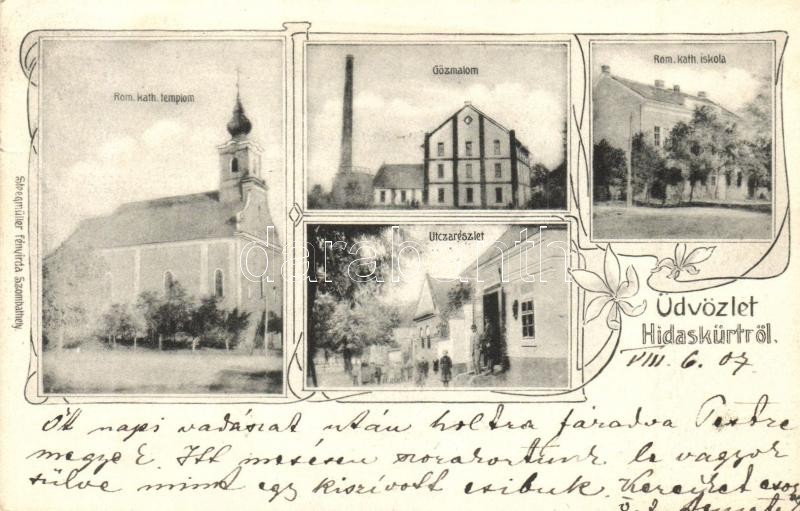 Rom. kath. templom
Gőzmalom
Rom. kath. iskola
Utczarészlet
Stvegmüller fényirda Szombathely.
darabanth.com
Üdvözlet
Hidaskürtről.
VIII. 6. 07
Öt napi vadászat után holtra fáradva Pestre
megyek. Itt mesésen szórakoztunk le vagyok
sülve mint egy kiszívott csibuk. Kezeiket csó